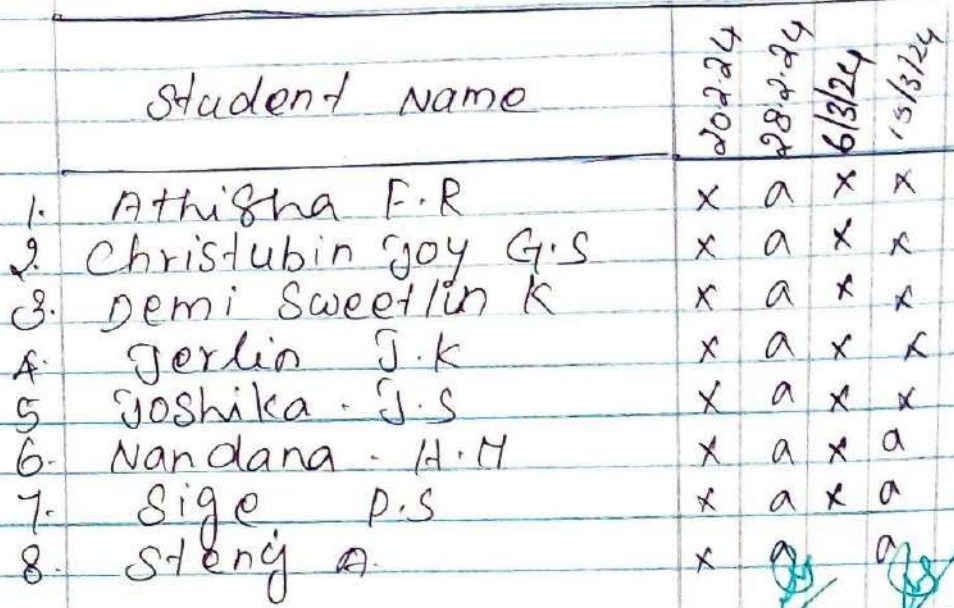 Student Name 20.2.24 28.2.24 6/3/24 13/3/24
1. Athisha F.R x a x x
2. Christubin Joy G.S x a x x
3. Demi Sweetlin K x a x x
4. Jerlin J.K x a x x
5 Joshika . J.S x a x x
6. Nandana - H.M x a x a
7. Sige P.S x a x a
8. Steny A. x a a